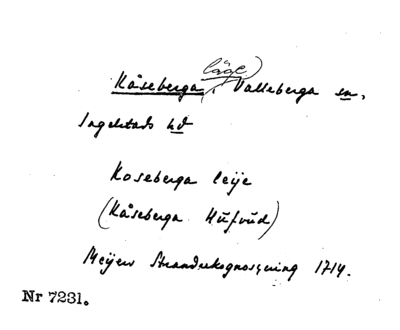 Kåseberga läge, Valleberga sn,
Ingelstads hd
Koseberga leije
(Kåseberga Hüfvüd)
Meijers Strandrekognoscering 1714.
Nr 7231.